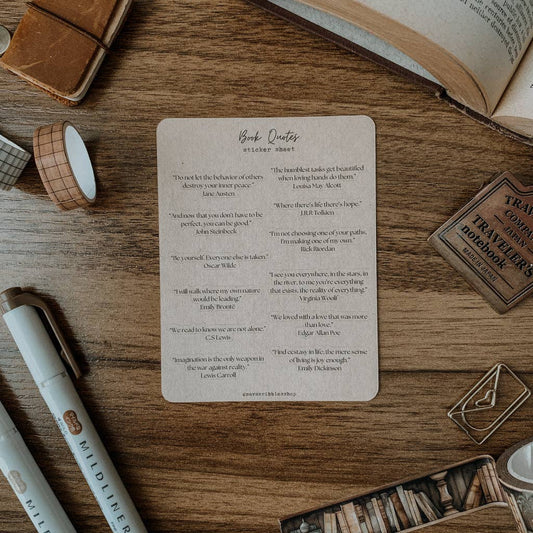 Book Quotes
sticker sheet
"Do not let the behavior of others
destroy your inner peace."
Jane Austen
"And now that you don't have to be
perfect, you can be good."
John Steinbeck
"Be yourself. Everyone else is taken."
Oscar Wilde
"I will walk where my own nature
would be leading."
Emily Brontë
"We read to know we are not alone."
C.S Lewis
"Imagination is the only weapon in
the war against reality."
Lewis Carroll
"The humblest tasks get beautified
when loving hands do them."
Louisa May Alcott
"Where there's life there's hope."
J.R.R Tolkien
"I'm not choosing one of your paths,
I'm making one of my own."
Rick Riordan
"I see you everywhere, in the stars, in
the river, to me you're everything
that exists, the reality of everything."
Virginia Woolf
"We loved with a love that was more
than love."
Edgar Allan Poe
"Find ecstasy in life; the mere sense
of living is joy enough."
Emily Dickinson
TRAVELER'S
COMPANY
JAPAN
TRAVELER'S
notebook
MADE IN JAPAN
MILDLINER
MILDLINER